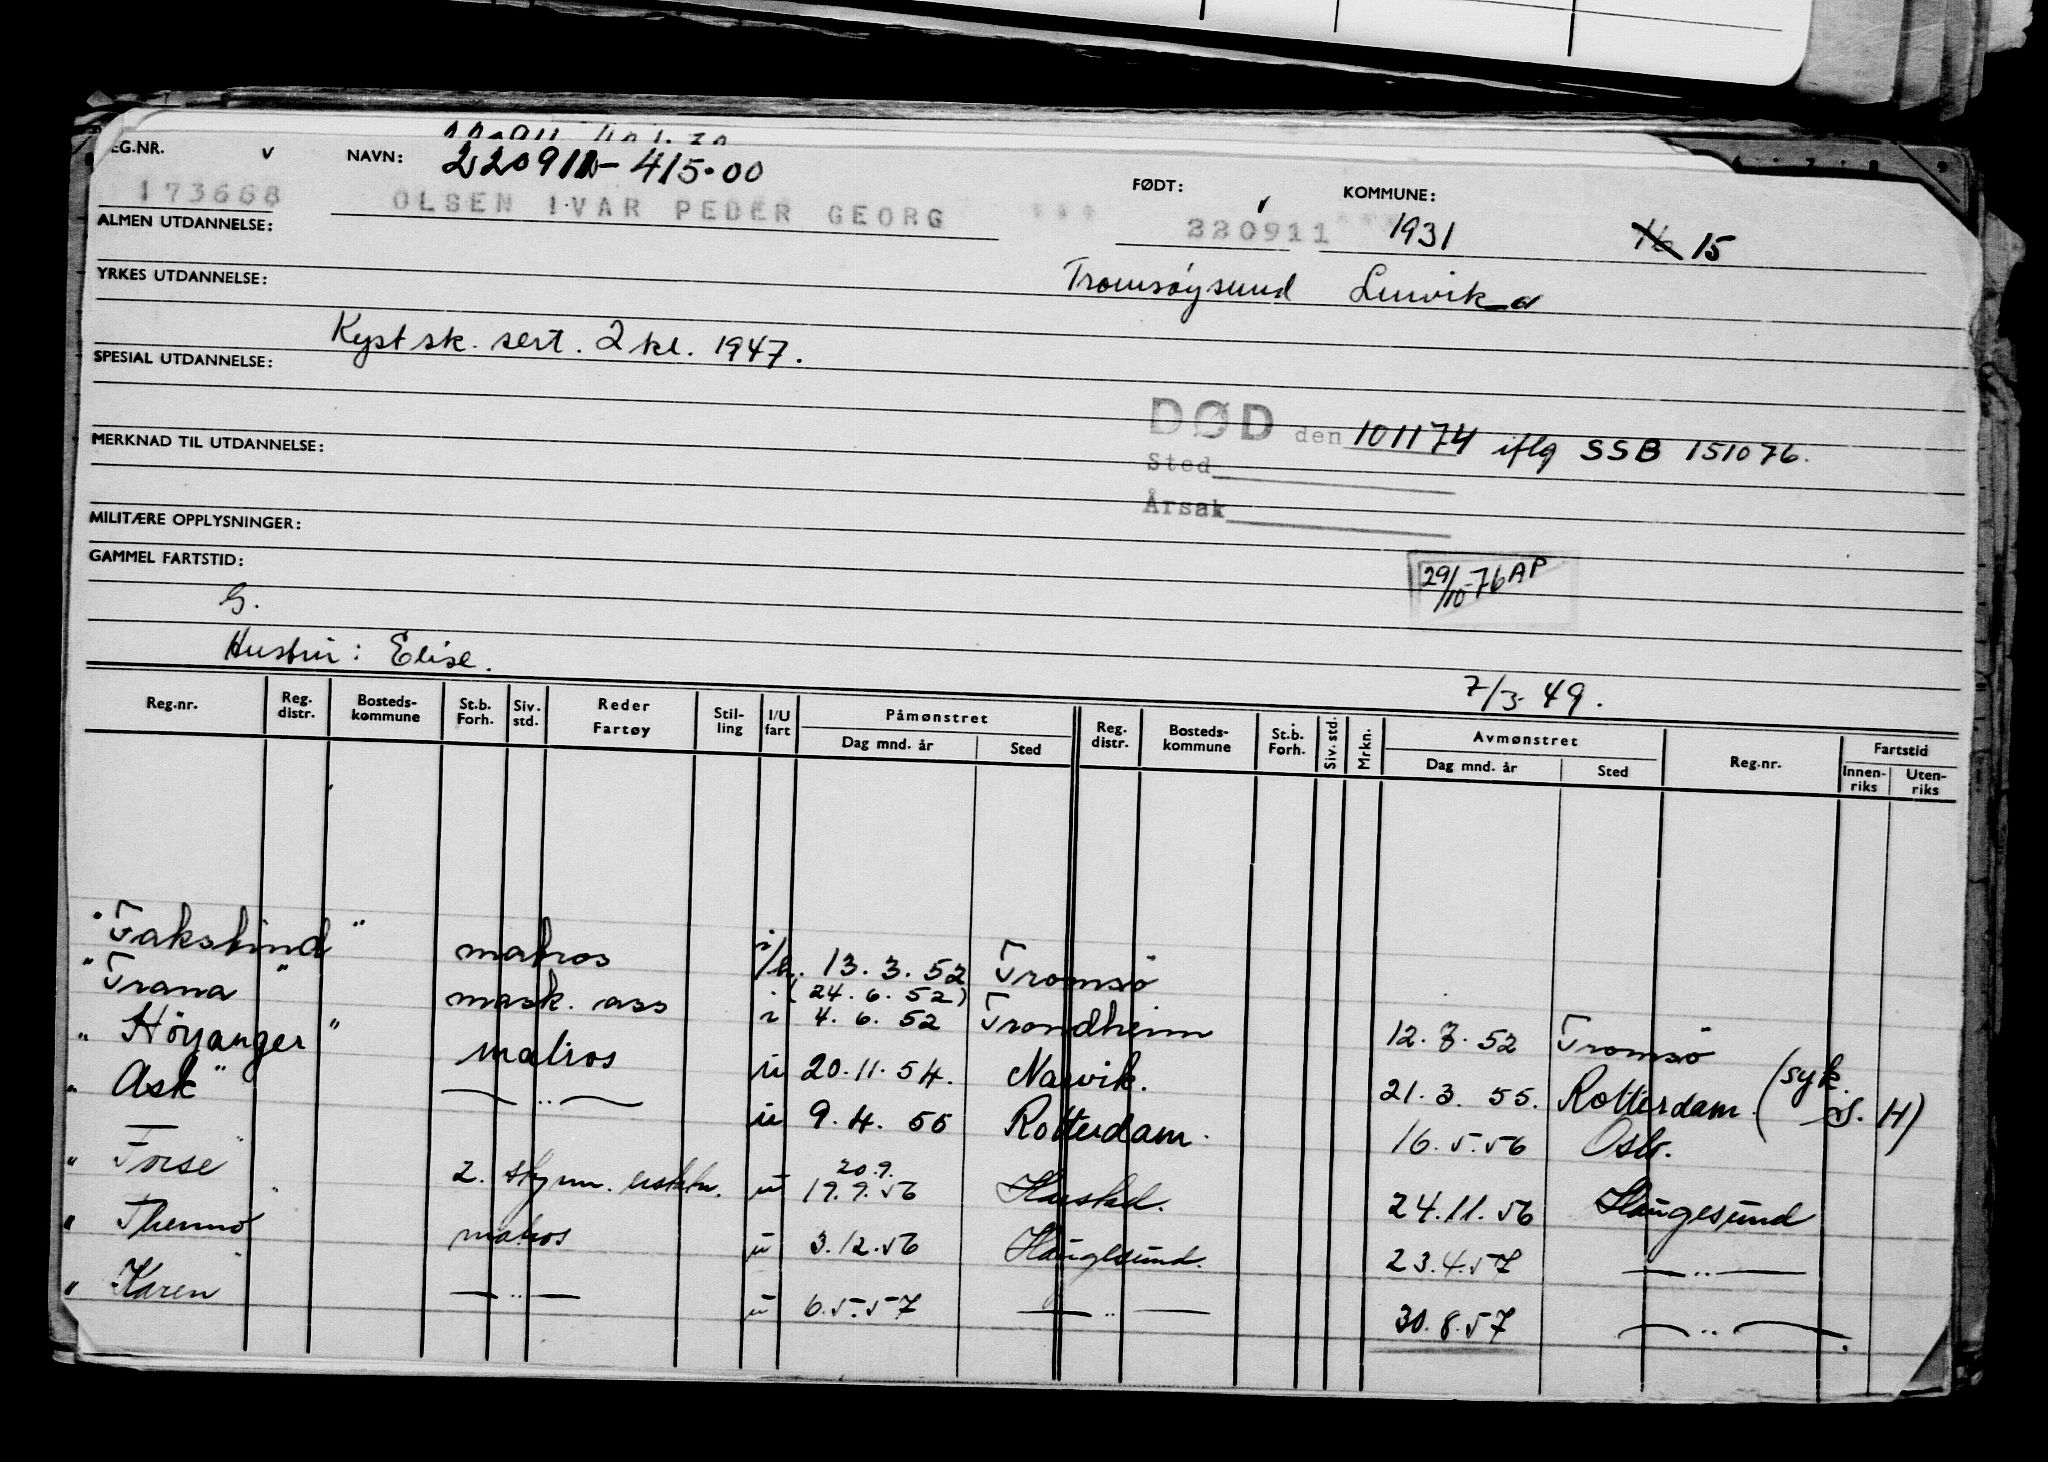 REG.NR. v NAVN: 220911-415.00
173668 OLSEN IVAR PEDER GEORG *** FØDT: 220911 KOMMUNE: 1931 15
ALMEN UTDANNELSE:
YRKES UTDANNELSE: Tromsøysund
Kystsk. sert. 2 kl. 1947.
SPESIAL UTDANNELSE:
DØD den 101174 iflg SSB 151076.
MERKNAD TIL UTDANNELSE:
Sted
Årsak
MILITÆRE OPPLYSNINGER:
GAMMEL FARTSTID:
29/10-76 AP
G.
Hustru: Elise.
7/3-49.
Reg.nr. Reg. distr. Bosteds-kommune St.b. Forh. Siv. std. Reder Fartøy Stil-ling I/U fart Påmønstret Dag mnd. år Sted Reg. distr. Bosteds-kommune St.b. Forh. Siv. std. Mrkn. Avmønstret Dag mnd. år Sted Reg.nr. Fartstid Innen-riks Uten-riks
"Fakstind" matros 13.3.52 Tromsø
(24.6.52)
"Trana" mask. ass i 4.6.52 Trondheim 12.7.52 Tromsø
"Höyanger" matros u 20.11.54. Narvik. 21.3.55. Rotterdam. (syk. S.H)
"Ask" — " — u 9.4.55 Rotterdam. 16.5.56 Oslo.
20.9.
"Torse" 2. u 19.9.56 Harstad. 24.11.56 Haugesund
"Thermo" matros u 3.12.56 Haugesund. 23.4.57 — " —
"Karen" — " — u 6.5.57 — " — 30.8.57 — " —.